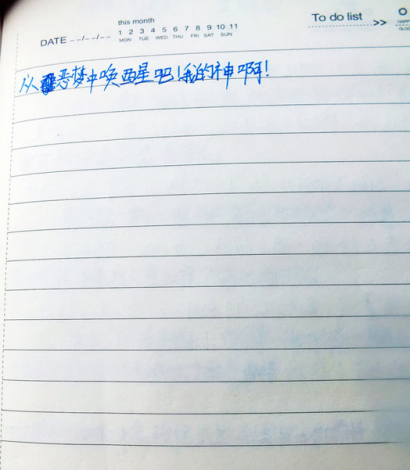 this month
To do list >>
DATE --/--/-- 1 2 3 4 5 6 7 8 9 10 11
MON TUE WED THU FRI SAT SUN
从恶梦中唤醒吧!我的神啊!